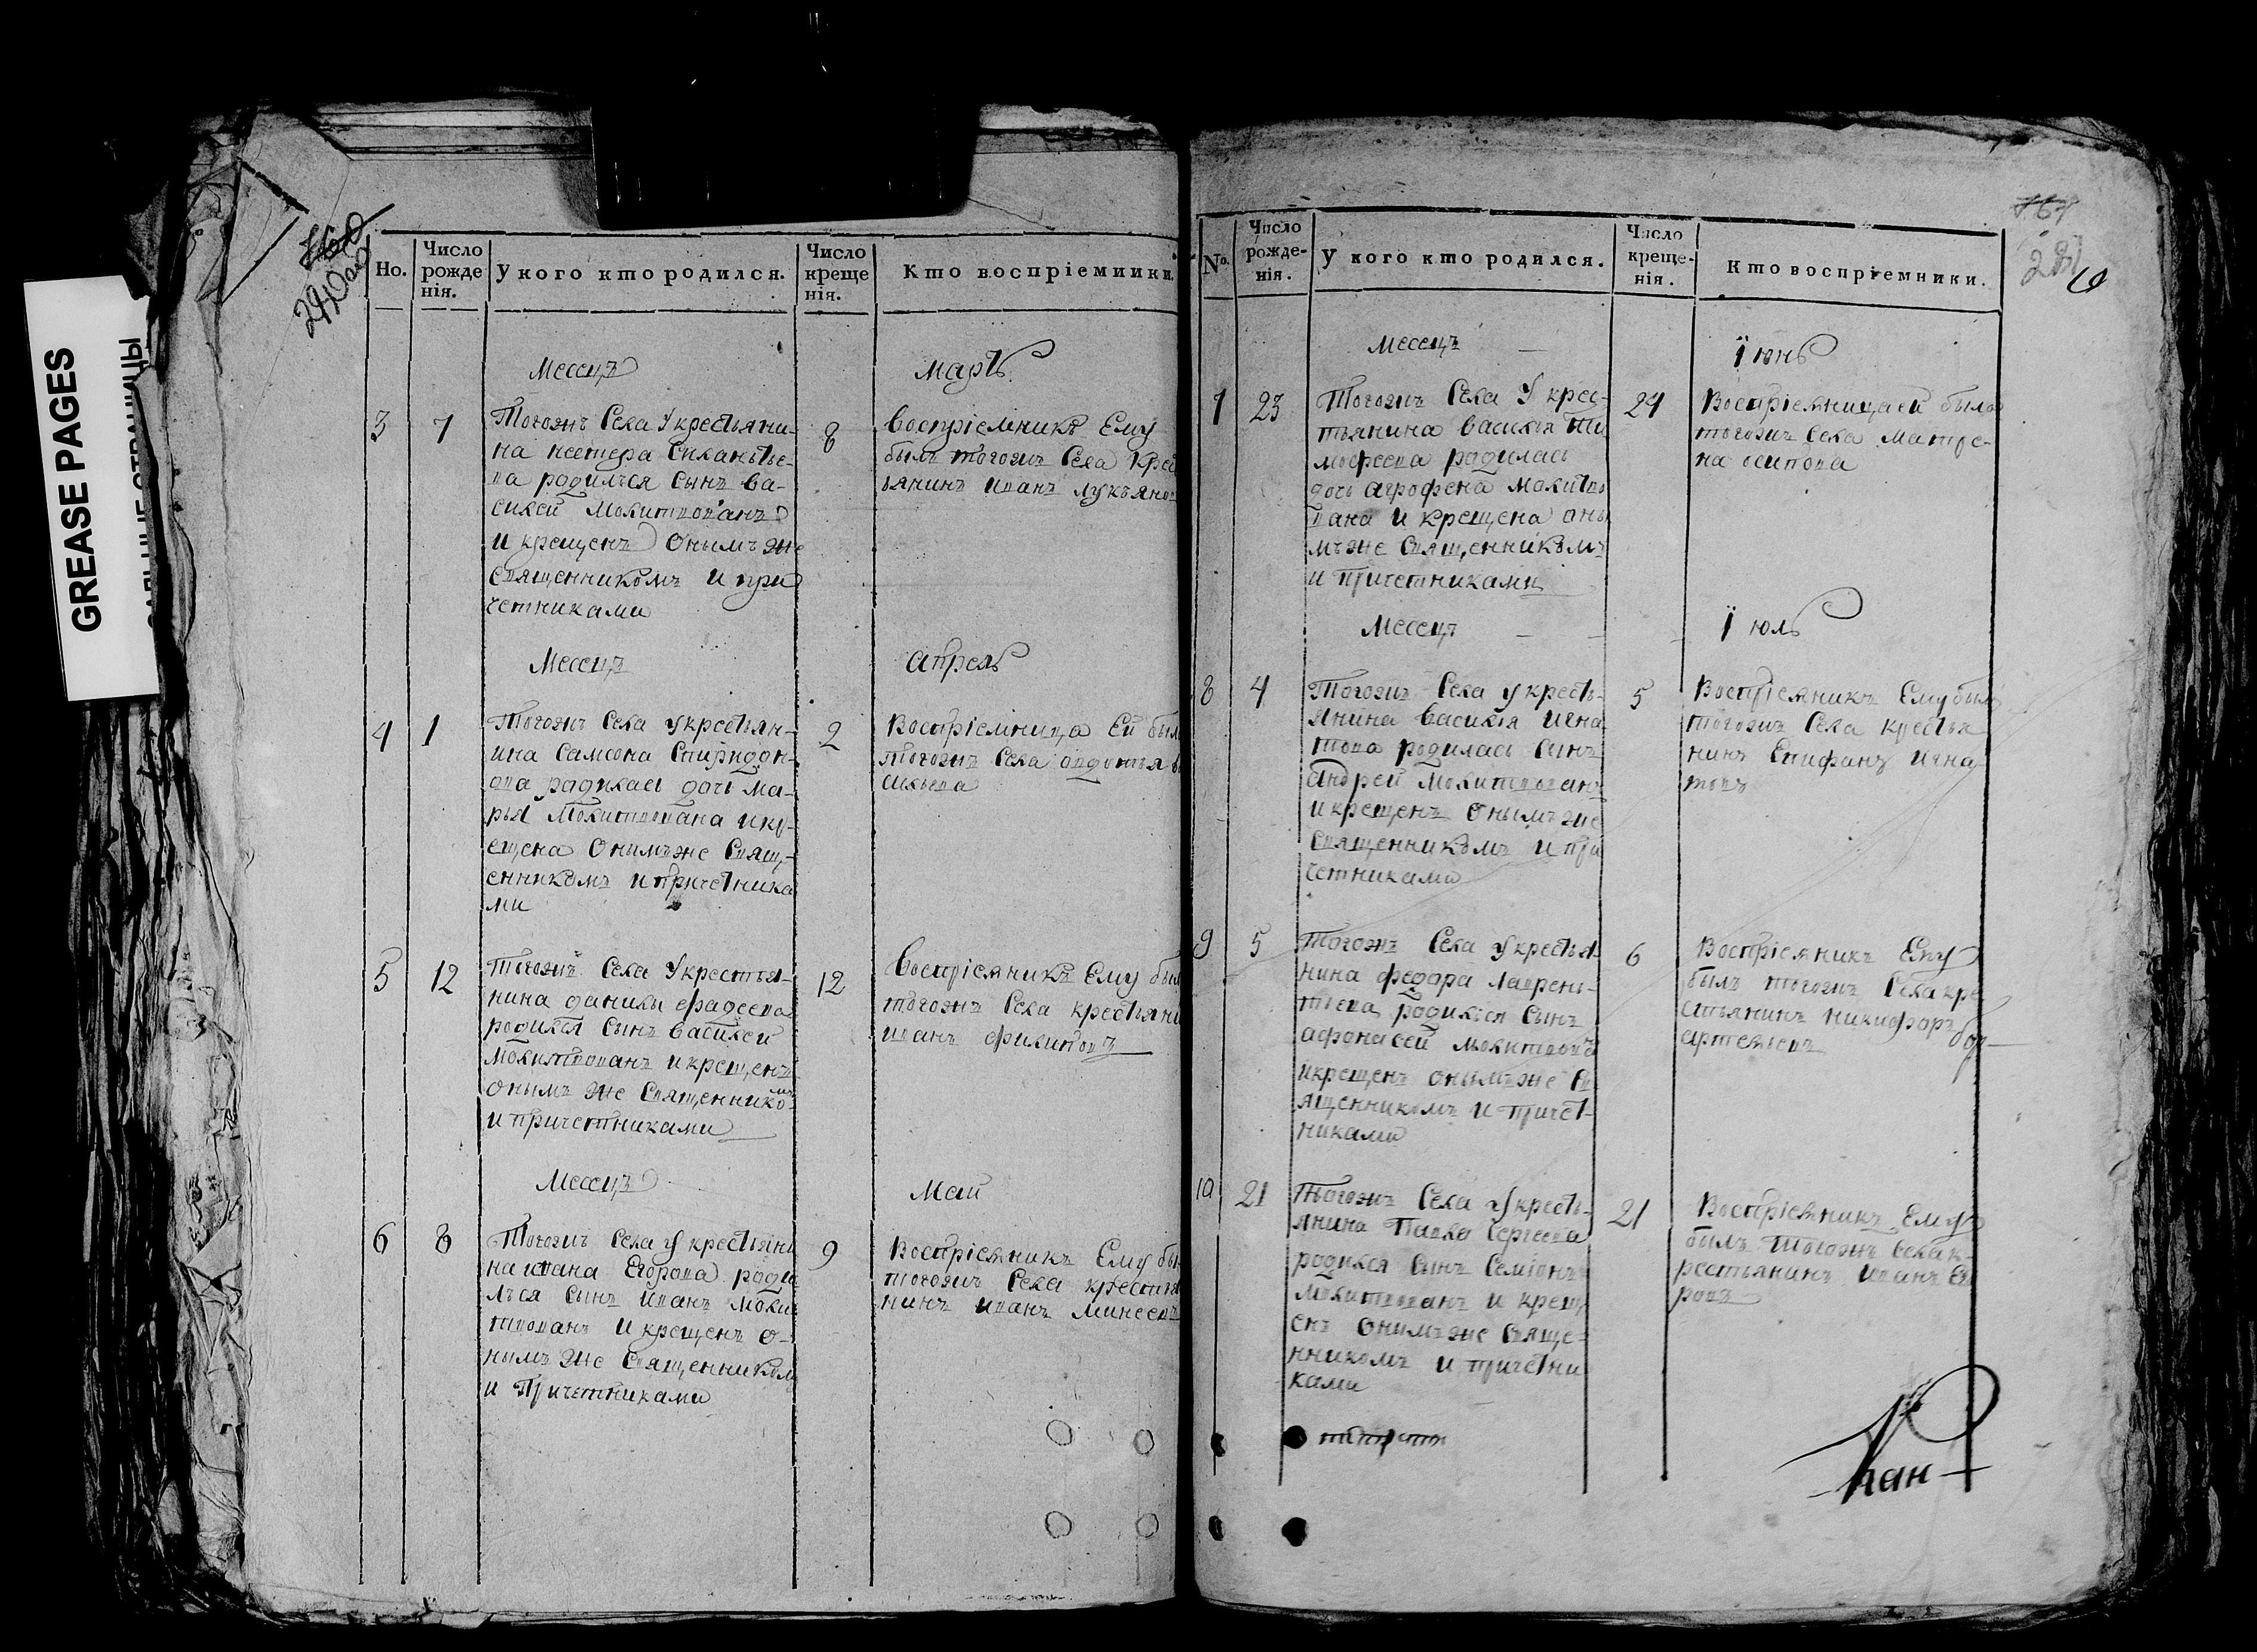 GREASE PAGES
Но.
Число рожде нія.
У кого кто родился.
Число креще нія.
Кто воспріемники.
Месецъ
мартъ
3
7
Тогожъ Села Укрестьяни-
на нестера
ва родился Сынъ ва-
силей молитвованъ
и крещенъ Онымъ же
священникомъ и при
четниками
8
Воспріемникъ Ему
былъ тогожъ Села Крес
ьянинъ иванъ лукьянов
Месецъ
апрель
4
1
Тогожъ Села укрестьян-
ина Самсона Спиридон-
ова родилась дочь ма-
рья Молитвована икр-
ещена Онымъже Свящ-
енникомъ и причетника
ми
2
Воспріемница Ей был
тогожъ Села авдотья ва
сильева
5
12
Тогожъ Села Укрестья-
нина данилы фадеева
родился Сынъ василей
Молитвованъ и крещенъ
Онымъ же Священнико мъ
и причетниками
12
Воспріемникъ Ему был
тогожъ Села крестьяни
иванъ филиповъ
Месецъ
Маи
6
8
Тогожъ Села у крестьяни
на ивана Егорова роди
лъся Сынъ иванъ моли
твованъ и крещенъ о-
нымъ же Священником
и Причетниками
9
Воспріемникъ Ему бы
тогожъ Села крестья
нинъ иванъ Минеевъ
№.
Число рожде- нія.
У кого кто родился.
Число креще- нія.
Кто воспріемники.
Месецъ
Їюнь
7
23
Тогожъ Села У крес-
тьянина василья ти
мофеева родилась
дочь агрофена молитво
вана и крещена оны
мъже Священникомъ
и Причетниками
24
Воспріемницаей была
тогожъ Села матре-
на осипова
Месецъ
Їюль
8
4
Тогожъ Села укресть-
янина василія игна
това родилась Сынъ
андрей молитвованъ
и крещенъ Онымъ же
Священникомъ и при
четниками
5
Воспріемникъ Ему был
тогожъ Села крестья
нинъ Епифанъ игна
товъ
9
5
Тогожъ Села укрестья-
нина федора лаврень-
тьева родился Сынъ
афонасей молитвова
и крещенъ онымъже Св
ященникомъ и причет-
никами
6
Воспріемникъ Ему
былъ тогожъ Села кре
стьянинъ никифоръ
артемьевъ
10
21
Тогожъ Села Укресть-
янина Павла Сергеева
родился Сынъ Семіонъ
молитвованъ и крещ
енъ Онымъже Свяще-
нникомъ и причетни
ками
21
Воспріемникъ Ему
былъ тогожъ Села к-
рестьянинъ иванъ Ег
ровъ